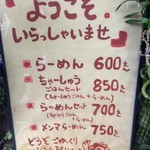 ようこそ。
いらっしゃいませ
らーめん 600えん
ちゃーしゅう 850えん
ごはんセット
らーめんセット 700えん
(ごはん
+らーめん)
メンマらーめん 750えん
どうぞ ごゆっくり